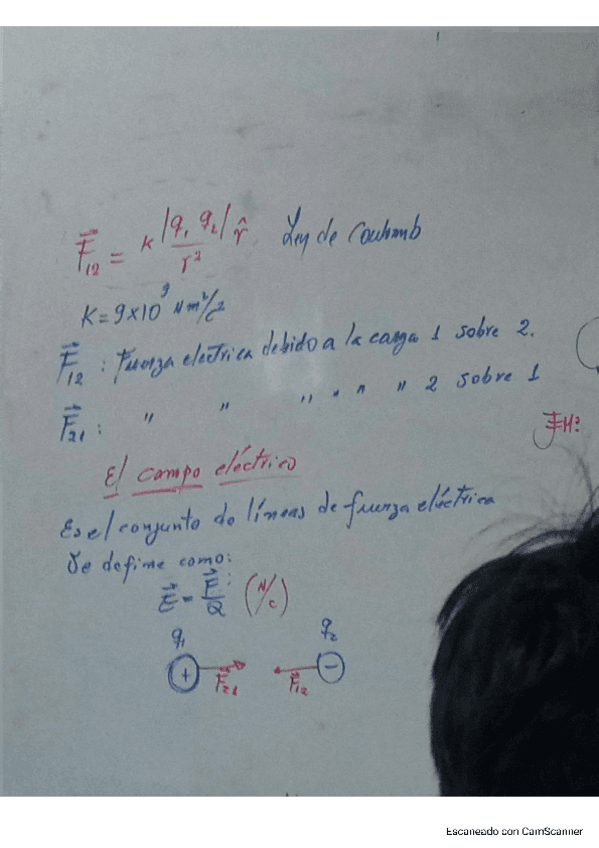 F⃗₁₂ = K |q₁ q₂| / r² r̂ Ley de Coulomb
K = 9×10⁹ Nm²/C²
F⃗₁₂ : Fuerza electrica debido a la carga 1 sobre 2.
F⃗₂₁ : " " " " " " 2 sobre 1
El campo eléctrico
Es el conjunto de líneas de fuerza eléctrica
Se define como:
E⃗ = F⃗ / Q (N/C)
q₁ q₂
+ F⃗₂₁ F⃗₁₂ −
Escaneado con CamScanner